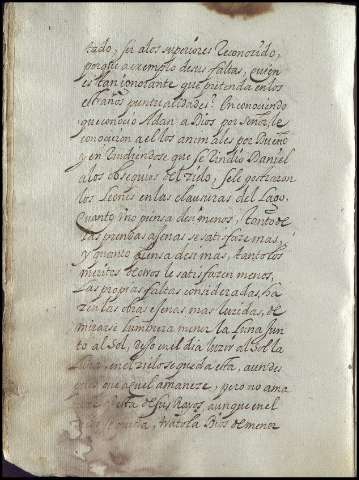 tado, sea los superiores reconozido,
porque a exemplo de sus faltas, quien
es tan ignorante que pretenda en los
estraños puntualidades? En conociendo
que conocio Adan a Dios por señor, le
conocieron a el los animales por Dueño
y en rindiendose que se rindio Daniel
a los obsequios del zielo, se le postraron
los Leones en las clausuras del Lago.
Quanto uno piensa de si menos, tanto de
las prendas ajenas se satisfaze mas,
y quanto piensa de si mas, tanto los
meritos de otros le satisfazen menos.
Las propias faltas consideradas, ha
zen las obras ajenas mas luzidas, de
mirarse lumbrera menor la Luna jun
to al Sol, dejo en el dia luzir al Sol la
Luna, en el zielo se queda esta, aun des
pues que aquel amaneze, pero no ama
de sus Rayos, aunque en el
tratola Dios de menor